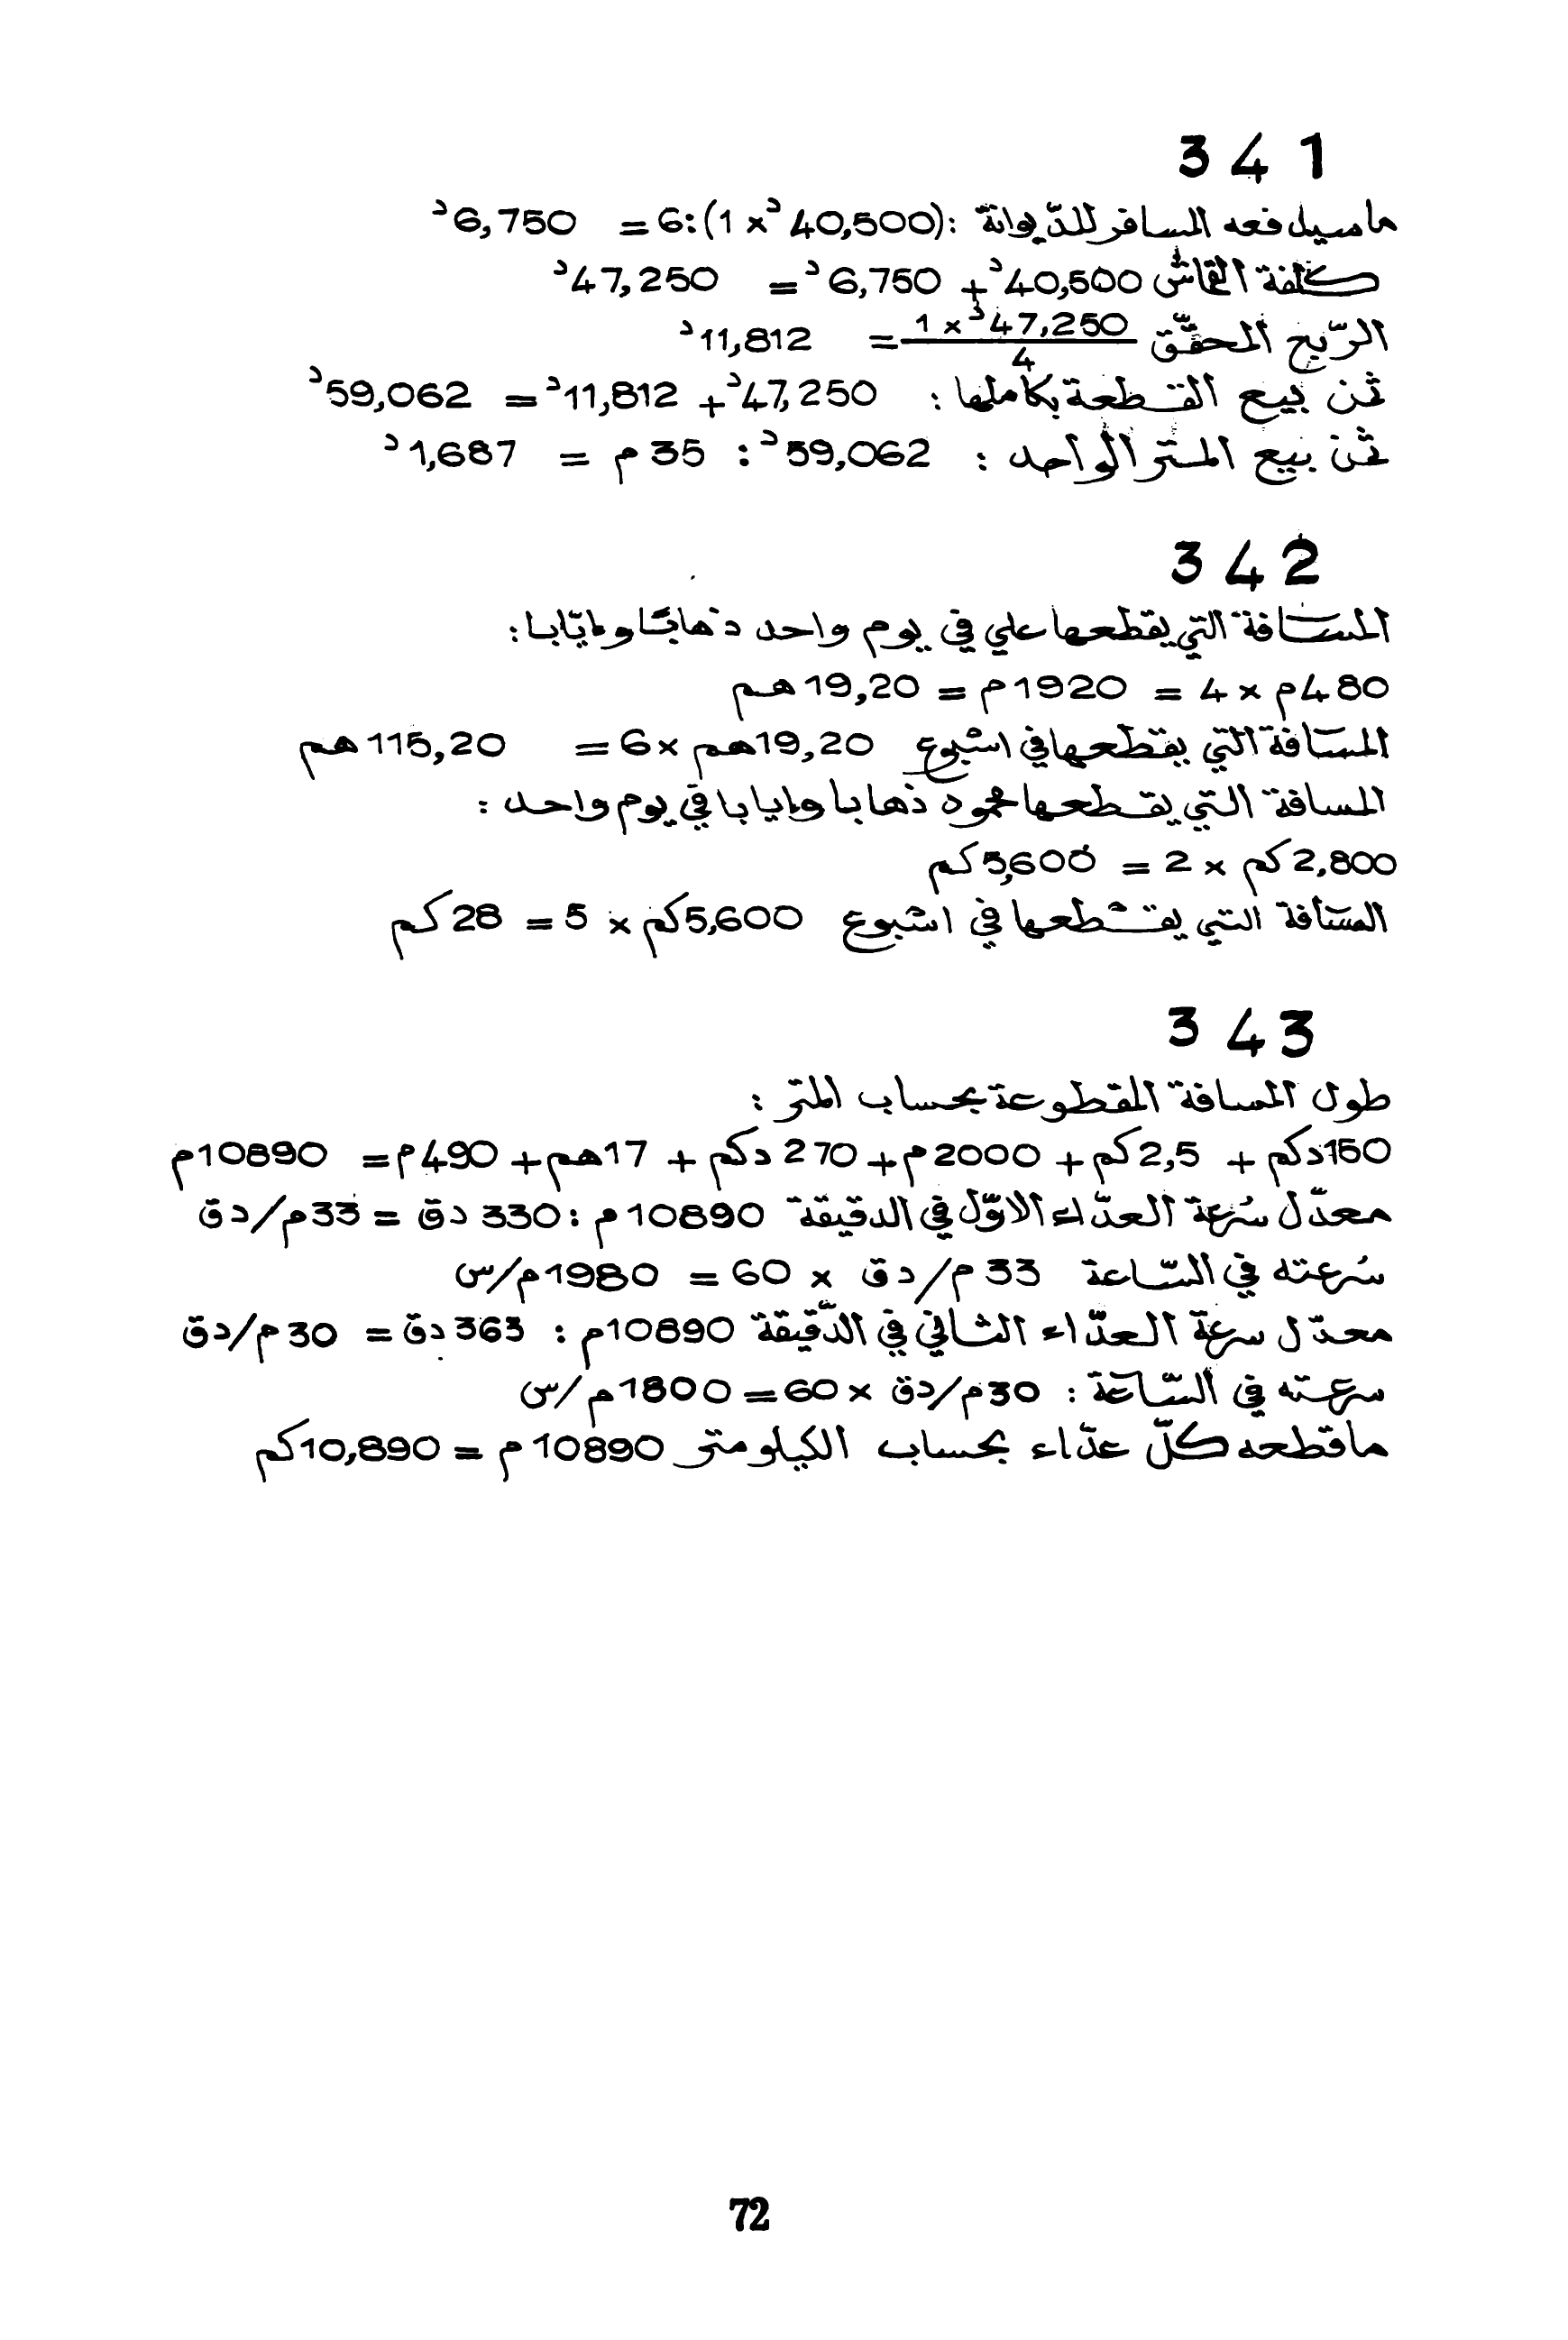 341
ما سيدفعه المسافر للدّيوانة : (40,500د x 1):6 = 6,750د
كلفة القماش 40,500د + 6,750د = 47,250د
الرّبح المحقّق 47,250د x 1 / 4 = 11,812د
ثمن بيع القطعة بكاملها : 47,250د + 11,812د = 59,062د
ثمن بيع المتر الواحد : 59,062د : 35 م = 1,687د
342
المسافة التي يقطعها علي في يوم واحد ذهابًا وإيّابا :
480م x 4 = 1920م = 19,20هم
المسافة التي يقطعها في أسبوع 19,20هم x 6 = 115,20هم
المسافة التي يقطعها حمّوده ذهابا وإيابا في يوم واحد :
2,800كم x 2 = 5,600كم
المسافة التي يقطعها في أسبوع 5,600كم x 5 = 28كم
343
طول المسافة المقطوعة بحساب المتر :
150دكم + 2,5كم + 2000م + 270 دكم + 17هم + 490م = 10890م
معدّل سُرعة العدّاء الاوّل في الدقيقة 10890م : 330 دق = 33م/دق
سُرعته في السّاعة 33 م/دق x 60 = 1980م/س
معدّل سرعة العدّاء الثاني في الدّقيقة 10890م : 363دق = 30م/دق
سرعته في السّاعة : 30م/دق x 60 = 1800م/س
ما قطعه كلّ عدّاء بحساب الكيلومتر 10890م = 10,890كم
72